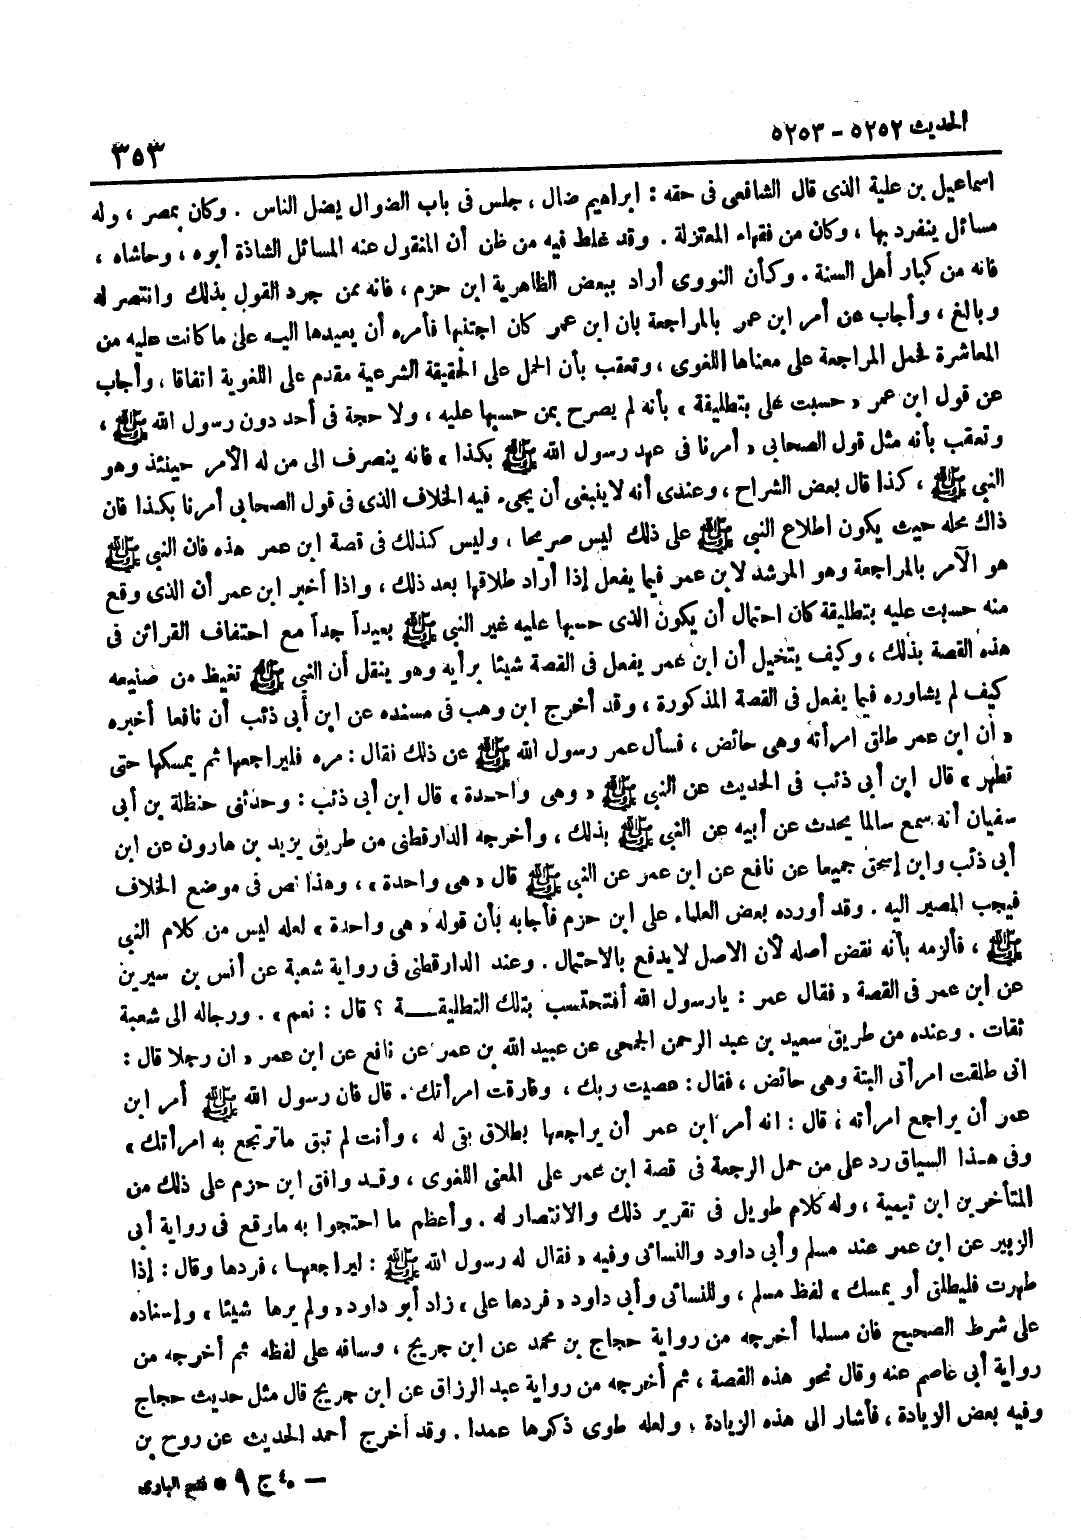 الحديث ٥٢٥٢ – ٥٢٥٣
٣٥٣
اسماعيل بن علية الذى قال الشافعى فى حقه : ابراهيم ضال ، جلس فى باب الضوال يضل الناس . وكان بمصر ، وله
مسائل ينفرد بها ، وكان من فقهاء المعتزلة . وقد غلط فيه من ظن أن المنقول عنه المسائل الشاذة أبوه ، وحاشاه ،
فانه من كبار أهل السنة . وكأن النووى أراد ببعض الظاهرية ابن حزم ، فانه ممن جرد القول بذلك وانتصر له
وبالغ ، وأجاب عن أمر ابن عمر بالمراجعة بان ابن عمر كان اجتنبها فأمره أن يعيدها اليه على ما كانت عليه من
المعاشرة فحمل المراجعة على معناها اللغوى ، وتعقب بأن الحمل على الحقيقة الشرعية مقدم على اللغوية اتفاقا ، وأجاب
عن قول ابن عمر « حسبت على بتطليقة » بأنه لم يصرح بمن حسبها عليه ، ولا حجة فى أحد دون رسول الله ﷺ ،
وتعقب بأنه مثل قول الصحابى « أمرنا فى عهد رسول الله ﷺ بكذا » فانه ينصرف الى من له الأمر حينئذ وهو
النبى ﷺ ، كذا قال بعض الشراح ، وعندى أنه لا ينبغى أن يجىء فيه الخلاف الذى فى قول الصحابى أمرنا بكذا فان
ذاك محله حيث يكون اطلاع النبى ﷺ على ذلك ليس صريحا ، وليس كذلك فى قصة ابن عمر هذه فان النبى ﷺ
هو الآمر بالمراجعة وهو المرشد لابن عمر فيما يفعل إذا أراد طلاقها بعد ذلك ، واذا أخبر ابن عمر أن الذى وقع
منه حسبت عليه بتطليقة كان احتمال أن يكون الذى حسبها عليه غير النبى ﷺ بعيداً جداً مع احتفاف القرائن فى
هذه القصة بذلك ، وكيف يتخيل أن ابن عمر يفعل فى القصة شيئا برأيه وهو ينقل أن النبى ﷺ تغيظ من صنيعه
كيف لم يشاوره فيما يفعل فى القصة المذكورة ، وقد أخرج ابن وهب فى مسنده عن ابن أبى ذئب أن نافعا أخبره
« أن ابن عمر طلق امرأته وهى حائض ، فسأل عمر رسول الله ﷺ عن ذلك فقال : مره فليراجعها ثم يمسكها حتى
تطهر » قال ابن أبى ذئب فى الحديث عن النبى ﷺ « وهى واحدة » قال ابن أبى ذئب : وحدثنى حنظلة بن أبى
سفيان أنه سمع سالما يحدث عن أبيه عن النبى ﷺ بذلك ، وأخرجه الدارقطنى من طريق يزيد بن هارون عن ابن
أبى ذئب وابن إسحق جميعا عن نافع عن ابن عمر عن النبى ﷺ قال « هى واحدة » ، وهذا نص فى موضع الخلاف
فيجب المصير اليه . وقد أورده بعض العلماء على ابن حزم فأجابه بأن قوله « هى واحدة » لعله ليس من كلام النبى
ﷺ ، فألزمه بأنه نقض أصله لأن الاصل لا يدفع بالاحتمال . وعند الدارقطنى فى رواية شعبة عن أنس بن سيرين
عن ابن عمر فى القصة « فقال عمر : يارسول الله أفتحتسب بتلك التطليقة ؟ قال : نعم » . ورجاله الى شعبة
ثقات . وعنده من طريق سعيد بن عبد الرحمن الجمحى عن عبيد الله بن عمر عن نافع عن ابن عمر « ان رجلا قال :
انى طلقت امرأتى البتة وهى حائض ، فقال : عصيت ربك ، وفارقت امرأتك . قال فان رسول الله ﷺ أمر ابن
عمر أن يراجع امرأته ، قال : انه أمر ابن عمر أن يراجعها بطلاق بقى له ، وأنت لم تبق ماترتجع به امرأتك »
وفى هذا السياق رد على من حمل الرجعة فى قصة ابن عمر على المعنى اللغوى ، وقد وافق ابن حزم على ذلك من
المتأخرين ابن تيمية ، وله كلام طويل فى تقرير ذلك والانتصار له . وأعظم ما احتجوا به ماوقع فى رواية أبى
الزبير عن ابن عمر عند مسلم وأبى داود والنسائى وفيه « فقال له رسول الله ﷺ : ليراجعها ، فردها وقال : إذا
طهرت فليطلق أو يمسك » لفظ مسلم ، وللنسائى وأبى داود « فردها على » زاد أبو داود « ولم يرها شيئا » وإسناده
على شرط الصحيح فان مسلما أخرجه من رواية حجاج بن محمد عن ابن جريج ، وساقه على لفظه ثم أخرجه من
رواية أبى عاصم عنه وقال نحو هذه القصة ، ثم أخرجه من رواية عبد الرزاق عن ابن جريج قال مثل حديث حجاج
وفيه بعض الزيادة ، فأشار الى هذه الزيادة ، ولعله طوى ذكرها عمدا . وقد أخرج أحمد الحديث عن روح بن
– ٤٥ ج ٩ * فتح البارى